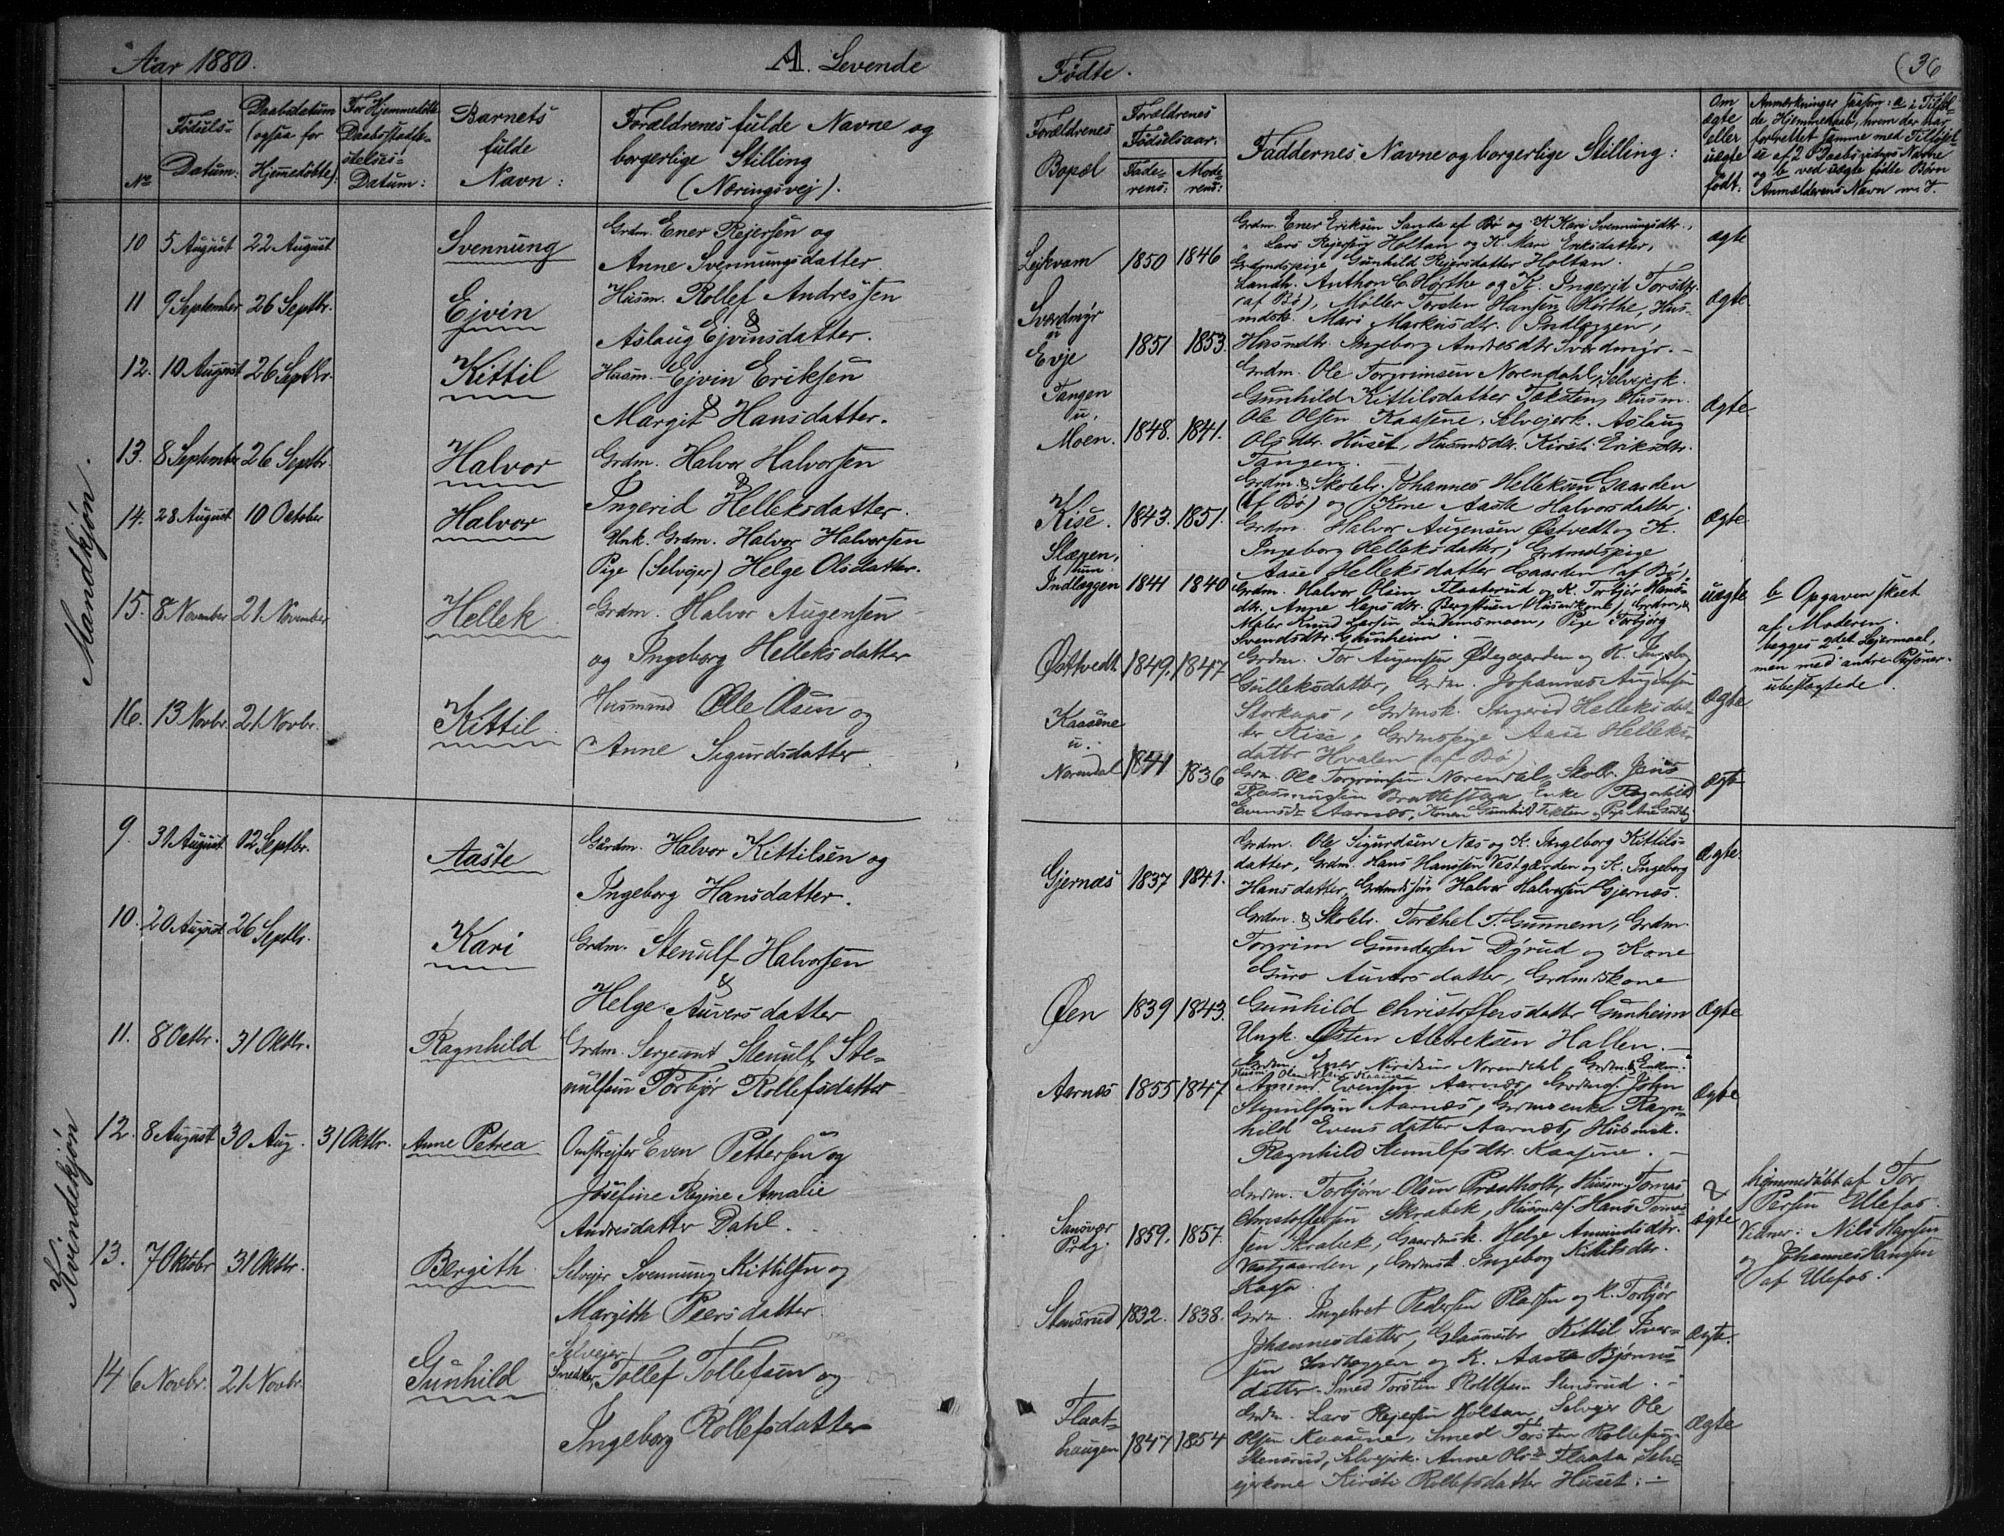 Aar 1880.
A. Levende
Fødte.
(36
No
Fødsels-
Datum:
Daabsdatum
(ogsaa for
Hjemmedøbte).
For Hjemmedøbte
Daabsstadfæ-
stelses-
Datum:
Barnets
fulde
Navn:
Forældrenes fulde Navne og
borgerlige Stilling
(Næringsvej).
Forældrenes
Bopæl
Forældrenes
Fødselsaar.
Fade-
rens:
Mode-
rens:
Faddernes Navne og borgerlige Stilling:
Om
ægte
eller
uægte
født.
Mandkjøn.
10 5 August 22 August
Svennung
Grdm. Ener Rejersen og
Anne Svennungsdatter.
Lejkvam 1850 1846
Grdm. Ener Eriksen Sanda af Bø og K. Kari Svennungsdtr.,
" Lars Rejersen Holtan og K. Mari Eriksdatter,
Grdmdspige Gunhild Rejersdatter Holtan.
ægte
11 9 September 26 Septbr.
Ejvin
Husm. Rollef Andressen
&
Aslaug Ejvinsdatter.
Sværdmyr
u
Evje 1851 1853.
Landh. Anthon C. Hørthe og K. Ingerid Torsdtr.
(af Bø), Møller Torsten Hansen Hørthe, Hus-
mdsk. Mari Markusdtr. Indlæggen,
Husmdtr. Ingeborg Andresdtr. Sværdmyr. —
Ægte
12. 10 August 26 Septbr.
Kittil
Husm. Ejvin Eriksen
&
Margit Hansdatter.
Tangen
u.
Moen. 1848. 1841.
Grdm. Ole Torgrimsen Norendahl, Selvejerk.
Gunhild Kittilsdatter Tæksten, Husm.
Ole Olsen Kaasene, Selvejerk. Aslaug
Olsdtr. Huset, Husmdsdtr. Kirsti Eriksdtr.
Tangen.
Ægte
13. 8 September 26 Septbr.
Halvor
Grdm. Halvor Halvorsen
&
Ingerid Helleksdatter.
Kise. 1843. 1851.
Grdm. & Skolelr. Johannes Helleksen Gaarden
(af Bø) og Kone Aaste Halvorsdatter,
Grdm. Halvor Augensen Østvedt og K.
Ingeborg Helleksdatter, Grdmdspige
Aase Helleksdatter Gaarden (af Bø)
Ægte
14. 28 August 10 October
Halvor
Unk. Grdm. Halvor Halvorsen
Pige (Selvejer) Helge Olsdatter.
Slæpen,
Indlæggen 1841 1840
Grdm. Halvor Olsen Flaaterud og K. Torbjør Hans-
uægte
b Opgaven skeet
af Moderen.
begges 2det Lejermaal,
men med andre Personer.
ubeslægtede.
15. 8 November 21 November
Hellek
Grdm. Halvor Augensen
og Ingeborg Helleksdatter
Østvedt 1849. 1847
Grdm. Tor Augensen Ødegaarden og K. Ingebor
Gulleksdatter, Grdm. Johannes Augensen
Storkaas, Grdmsk. Ingerid Helleksdat-
ter Kise, Grdmspige Aase Helleks-
datter Hvalen (af Bø)
Ægte
16. 13 Novbr. 21. Novbr.
Kittil
Husmand Ole Olsen og
Anne Sigurdsdatter.
Kaasene
u.
Norendal 1841 1836
Grdm. Ole Torgrimsen Norendal, Skolelr. Jens
Rasmussen Brattestaa, Enke Ragnhild
ægte
Kvindekjøn
9. 31 August 12 Septbr.
Aaste
Gårdm. Halvor Kittilsen og
Ingeborg Hansdatter.
Gjernæs 1837 1841.
Grdm. Ole Sigurdsen Næs og K. Ingeborg Kittils-
datter, Grdm. Hans Hansen Vestgarden og K. Ingeborg
Hansdatter, Grdmdssøn Halvor Halvorsen Gjernæs.
Ægte.
10. 20 August 26 Septbr.
Kari
Grdm. Stenulf Halvorsen
&
Helge Auversdatter
Øen 1839 1843.
Grdm. & Skolelr. Torchel T. Gunnem, Grdm.
Torgrim Gundersen Dyrud og Kone
Guro Auversdatter, Grdmdskone
Gunhild Christoffersdatter Gunheim
Ungk. Østen Allreksen Hallen. —
Ægte
11. 8 Octbr. 31 Oktbr.
Ragnhild
Grdm. Sergeant Stenulf Ste-
nulfsen Torbjør Rollefsdatter
Aarnæs 1855 1847
Amund Evensen Aarnæs, Grdmds. John
Stenulfsen Aarnæs, Grdmsenke Ragn-
hild Evensdatter Aarnæs, Husmsk.
Ragnhild Stenulfsdtr. Kaasene. —
Ægte
12. 8 August 30 Aug. 31 Oktbr.
Anne Petrea
Omstrejfer Even Pettersen og
Josefine Regine Amalie
Andresdatter Dahl.
Sansvær
Prdg. 1859. 1857.
Grdm. Torbjørn Olsen Præstholt, Husm. Tomas
Christoffersen Skrabek, Husmds. Hans Tomas-
sen Skrabek, Gaardmsk. Helge Amundsdtr.
Vestgaarden, Grdmsk. Ingeborg Kittilsdtr.
Kaasa.
ægte
hjemmedøbt af Tor
Persen Ulefos.
Vidner: Nils Hansen
og Johannes Hansen
af Ulefos.
13. 7 Oktobr 31 Oktbr.
Bergith
Selvejer Svennung Kittilsen og
Margith Peersdatter.
Stensrud 1832. 1838.
Grdm. Ingebret Pedersen Pladsen og K. Torbjør
Johannesdatter, Grdmdssn. Kittil Iver-
sen Indlæggen og K. Aaste Bjørns-
datter, Smed Torsten Rollefsen Stensrud. —
Ægte.
14 6 Novbr. 21 Novbr.
Gunhild
Selvejer,
Snedker, Tollef Tollefsen og
Ingeborg Rollefsdatter
Flaat-
haugen 1847 1854
Grdm. Lars Rejersen Holtan, Selvejer Ole
Olsen Kaasene, Smed Torsten Rollefsen
Stensrud, Selvejersk. Anne Olsdr Flaata, Selv-
ejerkone Kirsti Rollefsdatter Huset. —
Ægte